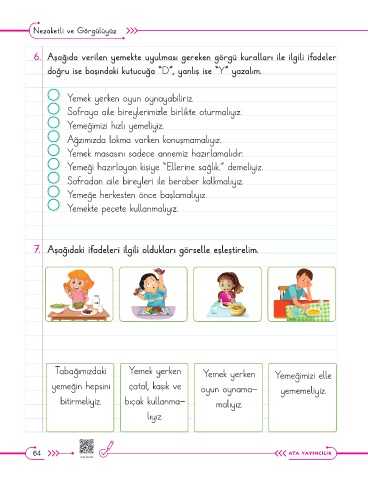 Nezaketli ve Görgülüyüz
6. Aşağıda verilen yemekte uyulması gereken görgü kuralları ile ilgili ifadeler
doğru ise başındaki kutucuğa "D", yanlış ise "Y" yazalım.
Yemek yerken oyun oynayabiliriz.
Sofraya aile bireylerimizle birlikte oturmalıyız.
Yemeğimizi hızlı yemeliyiz.
Ağzımızda lokma varken konuşmamalıyız.
Yemek masasını sadece annemiz hazırlamalıdır.
Yemeği hazırlayan kişiye "Ellerine sağlık." demeliyiz.
Sofradan aile bireyleri ile beraber kalkmalıyız.
Yemeğe herkesten önce başlamalıyız.
Yemekte peçete kullanmalıyız.
7. Aşağıdaki ifadeleri ilgili oldukları görselle eşleştirelim.
Tabağımızdaki
yemeğin hepsini
bitirmeliyiz.
Yemek yerken
çatal, kaşık ve
bıçak kullanma-
lıyız.
Yemek yerken
oyun oynama-
malıyız.
Yemeğimizi elle
yememeliyiz.
64
ATA YAYINCILIK